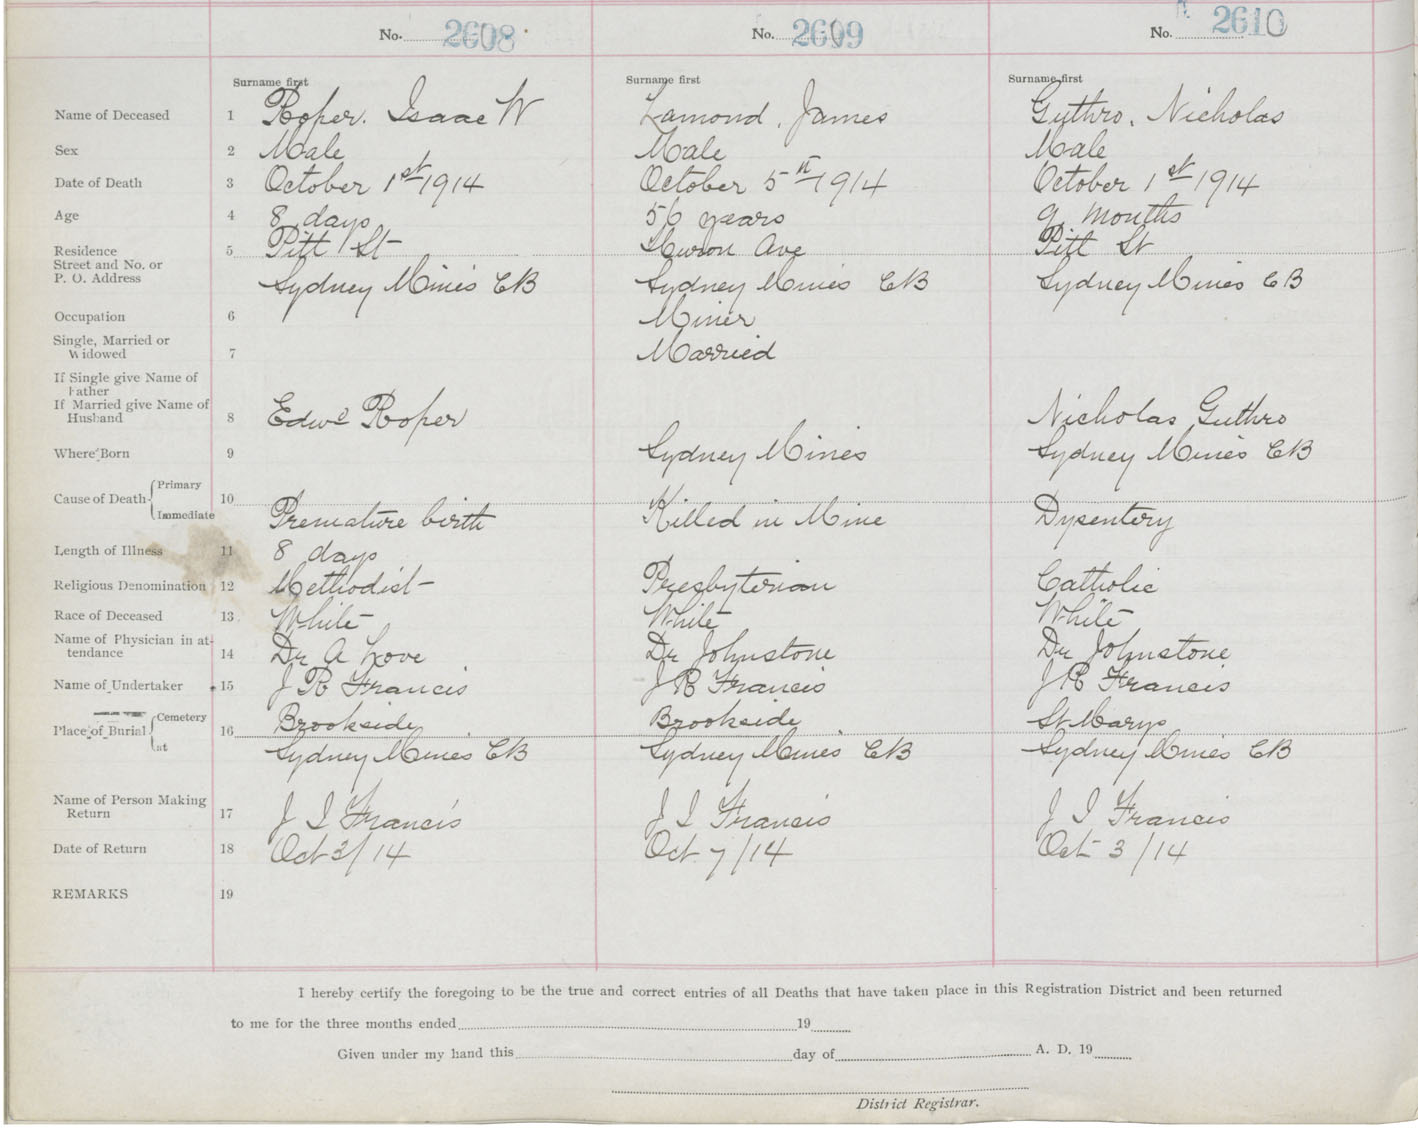 No. 2608 No. 2609 No. 2610
Surname first Surname first Surname first
Name of Deceased 1 Roper. Isaac W Lamond, James Guthro, Nicholas
Sex 2 Male Male Male
Date of Death 3 October 1st 1914 October 5th 1914 October 1st 1914
Age 4 8 days 56 years 9 months
Residence 5 Pitt St Huron Ave Pitt St
Street and No. or
P. O. Address Sydney Mines CB Sydney Mines CB Sydney Mines CB
Occupation 6 Miner
Single, Married or
Widowed 7 Married
If Single give Name of
Father
If Married give Name of
Husband 8 Edwd Roper Nicholas Guthro
Where Born 9 Sydney Mines Sydney Mines CB
Primary
Cause of Death 10
Immediate Premature birth Killed in Mine Dysentery
Length of Illness 11 8 days
Religious Denomination 12 Methodist Presbyterian Catholic
Race of Deceased 13 White White White
Name of Physician in at-
tendance 14 Dr A Love Dr Johnstone Dr Johnstone
Name of Undertaker 15 J R Francis J R Francis J R Francis
Cemetery
Place of Burial 16 Brookside Brookside St Marys
at Sydney Mines CB Sydney Mines CB Sydney Mines CB
Name of Person Making
Return 17 J I Francis J I Francis J I Francis
Date of Return 18 Oct 3/14 Oct 7/14 Oct 3/14
REMARKS 19
I hereby certify the foregoing to be the true and correct entries of all Deaths that have taken place in this Registration District and been returned
to me for the three months ended 19
Given under my hand this day of A. D. 19
District Registrar.